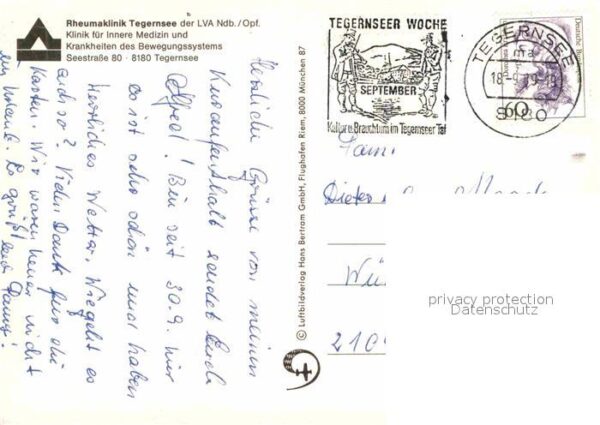 Rheumaklinik Tegernsee der LVA Ndb./Opf.
Klinik für Innere Medizin und
Krankheiten des Bewegungssystems
Seestraße 80 · 8180 Tegernsee
TEGERNSEER WOCHE
SEPTEMBER
Kultur u. Brauchtum im Tegernseer Tal
TEGERNSEE
ma
18-9
8180
60
Deutsche Bundespost
Herzliche Grüße von meinem
Kuraufenthalt sendet Euch
Alfred! Bin seit 30.9. hier
es ist sehr schön und haben
Herrliches Wetter. Wie geht es
Euch so? Vielen Dank für die
Karten. Wir waren heuer nicht
im Urlaub. Es grüßt Euch
© Luftbildverlag Hans Bertram GmbH, Flughafen Riem, 8000 München 87
Fam.
Dieter
Wü
210
privacy protection
Datenschutz